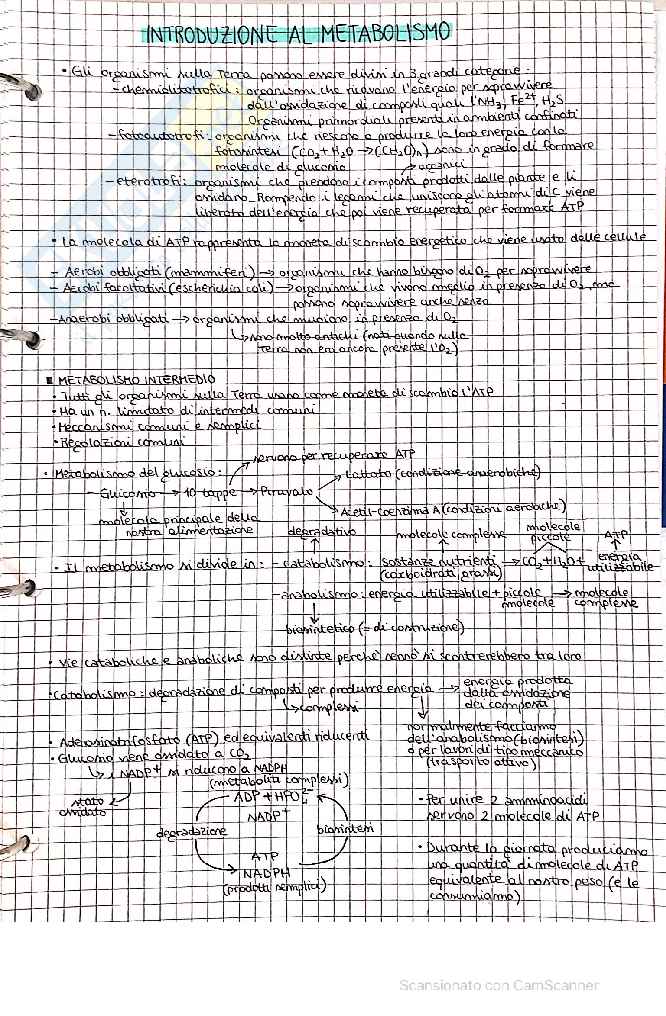 INTRODUZIONE AL METABOLISMO
• Gli organismi sulla Terra possono essere divisi in 3 grandi categorie:
- chemiolitotrofici: organismi che ricavano l'energia per sopravvivere
dall'ossidazione di composti quali l'NH3, Fe2+, H2S
Organismi primordiali presenti in ambienti confinati
- fotoautotrofi: organismi che riescono a produrre la loro energia con la
fotosintesi (CO2 + H2O → (CH2O)n) sono in grado di formare
molecole di glucosio
organici
- eterotrofi: organismi che prendono i composti prodotti dalle piante e li
ossidano. Rompendo i legami che uniscono gli atomi di C viene
liberata dell'energia che poi viene recuperata per formare ATP
• La molecola di ATP rappresenta la moneta di scambio energetico che viene usata dalle cellule
- Aerobi obbligati (mammiferi) → organismi che hanno bisogno di O2 per sopravvivere
- Aerobi facoltativi (escherichia coli) → organismi che vivono meglio in presenza di O2, ma
possono sopravvivere anche senza
- Anaerobi obbligati → organismi che muoiono in presenza di O2
↳ sono molto antichi (nati quando sulla
Terra non era ancora presente l'O2)
METABOLISMO INTERMEDIO
• Tutti gli organismi sulla Terra usano come moneta di scambio l'ATP
• Ha un n. limitato di intermedi comuni
• Meccanismi comuni e semplici
• Regolazioni comuni
servono per recuperare ATP
• Metabolismo del glucosio:
Lattato (condizione anaerobiche)
- Glucosio → 10 tappe → Piruvato
Acetil-coenzima A (condizioni aerobiche)
molecola principale della
nostra alimentazione
degradativo
molecole complesse
molecole
piccole
ATP
• Il metabolismo si divide in: - catabolismo: sostanze nutrienti → CO2 + H2O + energia
(carboidrati, grassi)
utilizzabile
- anabolismo: energia utilizzabile + piccole → molecole
molecole complesse
biosintetico (= di costruzione)
• Vie cataboliche e anaboliche sono distinte perché sennò si scontrerebbero tra loro
• Catabolismo: degradazione di composti per produrre energia → energia prodotta
↳ complessi
dalla ossidazione
dei composti
normalmente facciamo
dell'anabolismo (biosintesi)
o per lavori di tipo meccanico
(trasporto attivo)
• Adenosinatrifosfato (ATP) ed equivalenti riducenti
• Glucosio viene ossidato a CO2
↳ i NADP+ si riducono a NADPH
stato
ossidato
(metaboliti complessi)
ADP + HPO4 2-
NADP+
degradazione
biosintesi
ATP
NADPH
(prodotti semplici)
• Per unire 2 amminoacidi
servono 2 molecole di ATP
• Durante la giornata produciamo
una quantità di molecole di ATP
equivalente al nostro peso (e le
consumiamo)
Scansionato con CamScanner